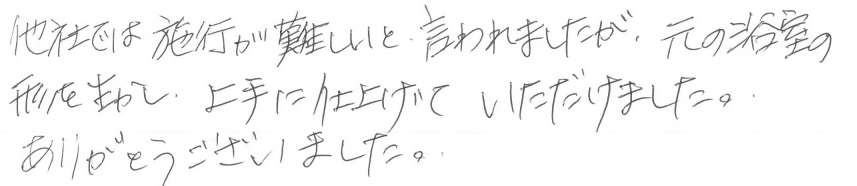 他社では施行が難しいと言われましたが、元の浴室の
形を生かし、上手に仕上げて いただけました。
ありがとうございました。